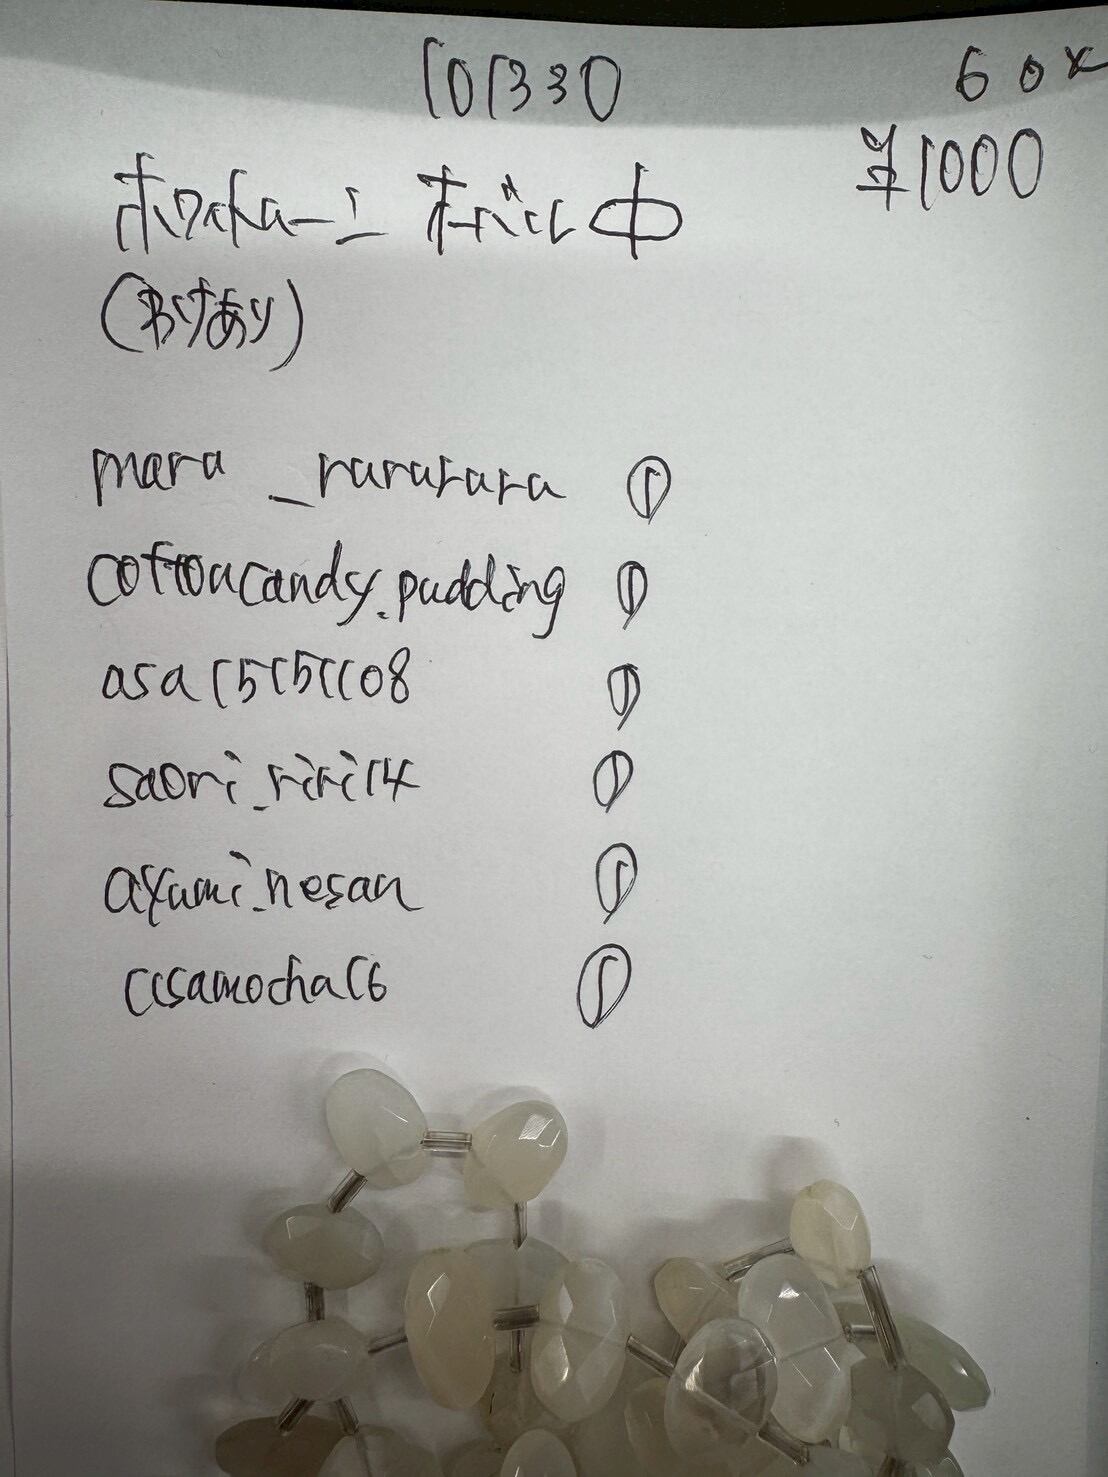 101330 60x
¥1000
ホワイトムーン オーバル 中
(わけあり)
mara_rararara ①
cottoncandy.pudding ①
asa15151108 ①
saori_riri14 ①
ayumi.nesan ①
ccsamocha16 ①